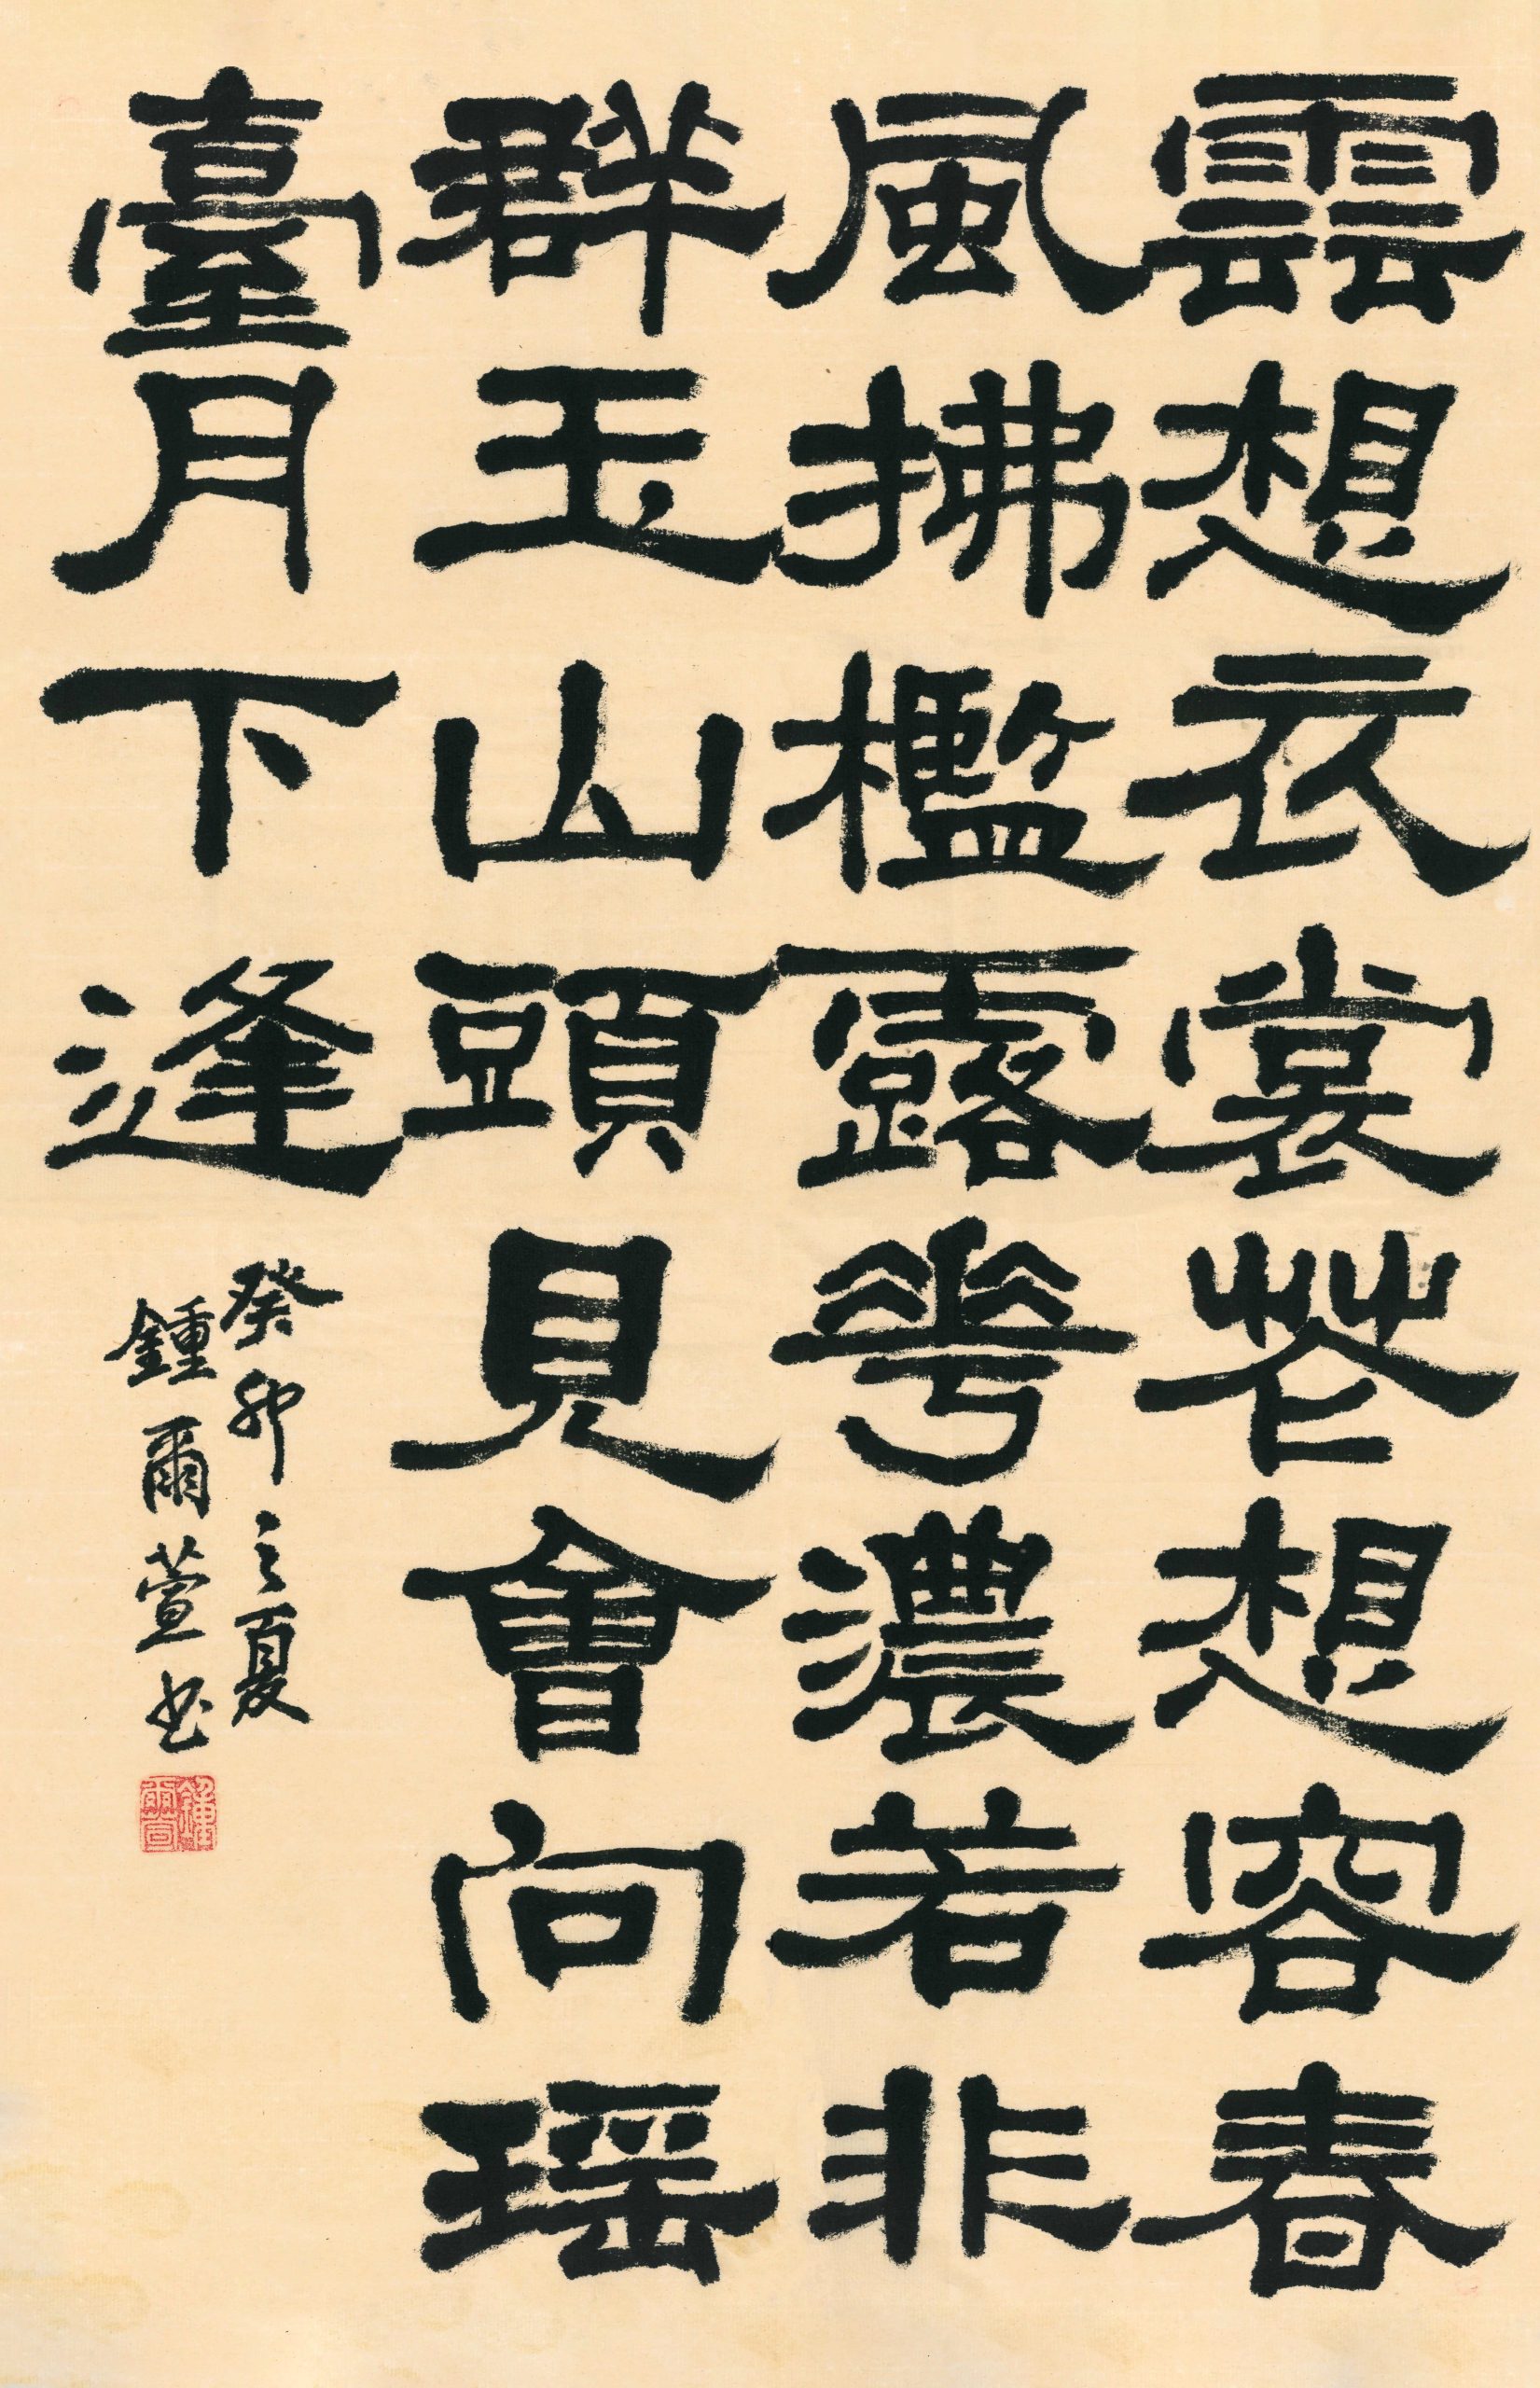 雲想衣裳花想容春
風拂檻露華濃若非
群玉山頭見會向瑶
臺月下逢
癸卯之夏
鍾爾萱书
鍾爾萱